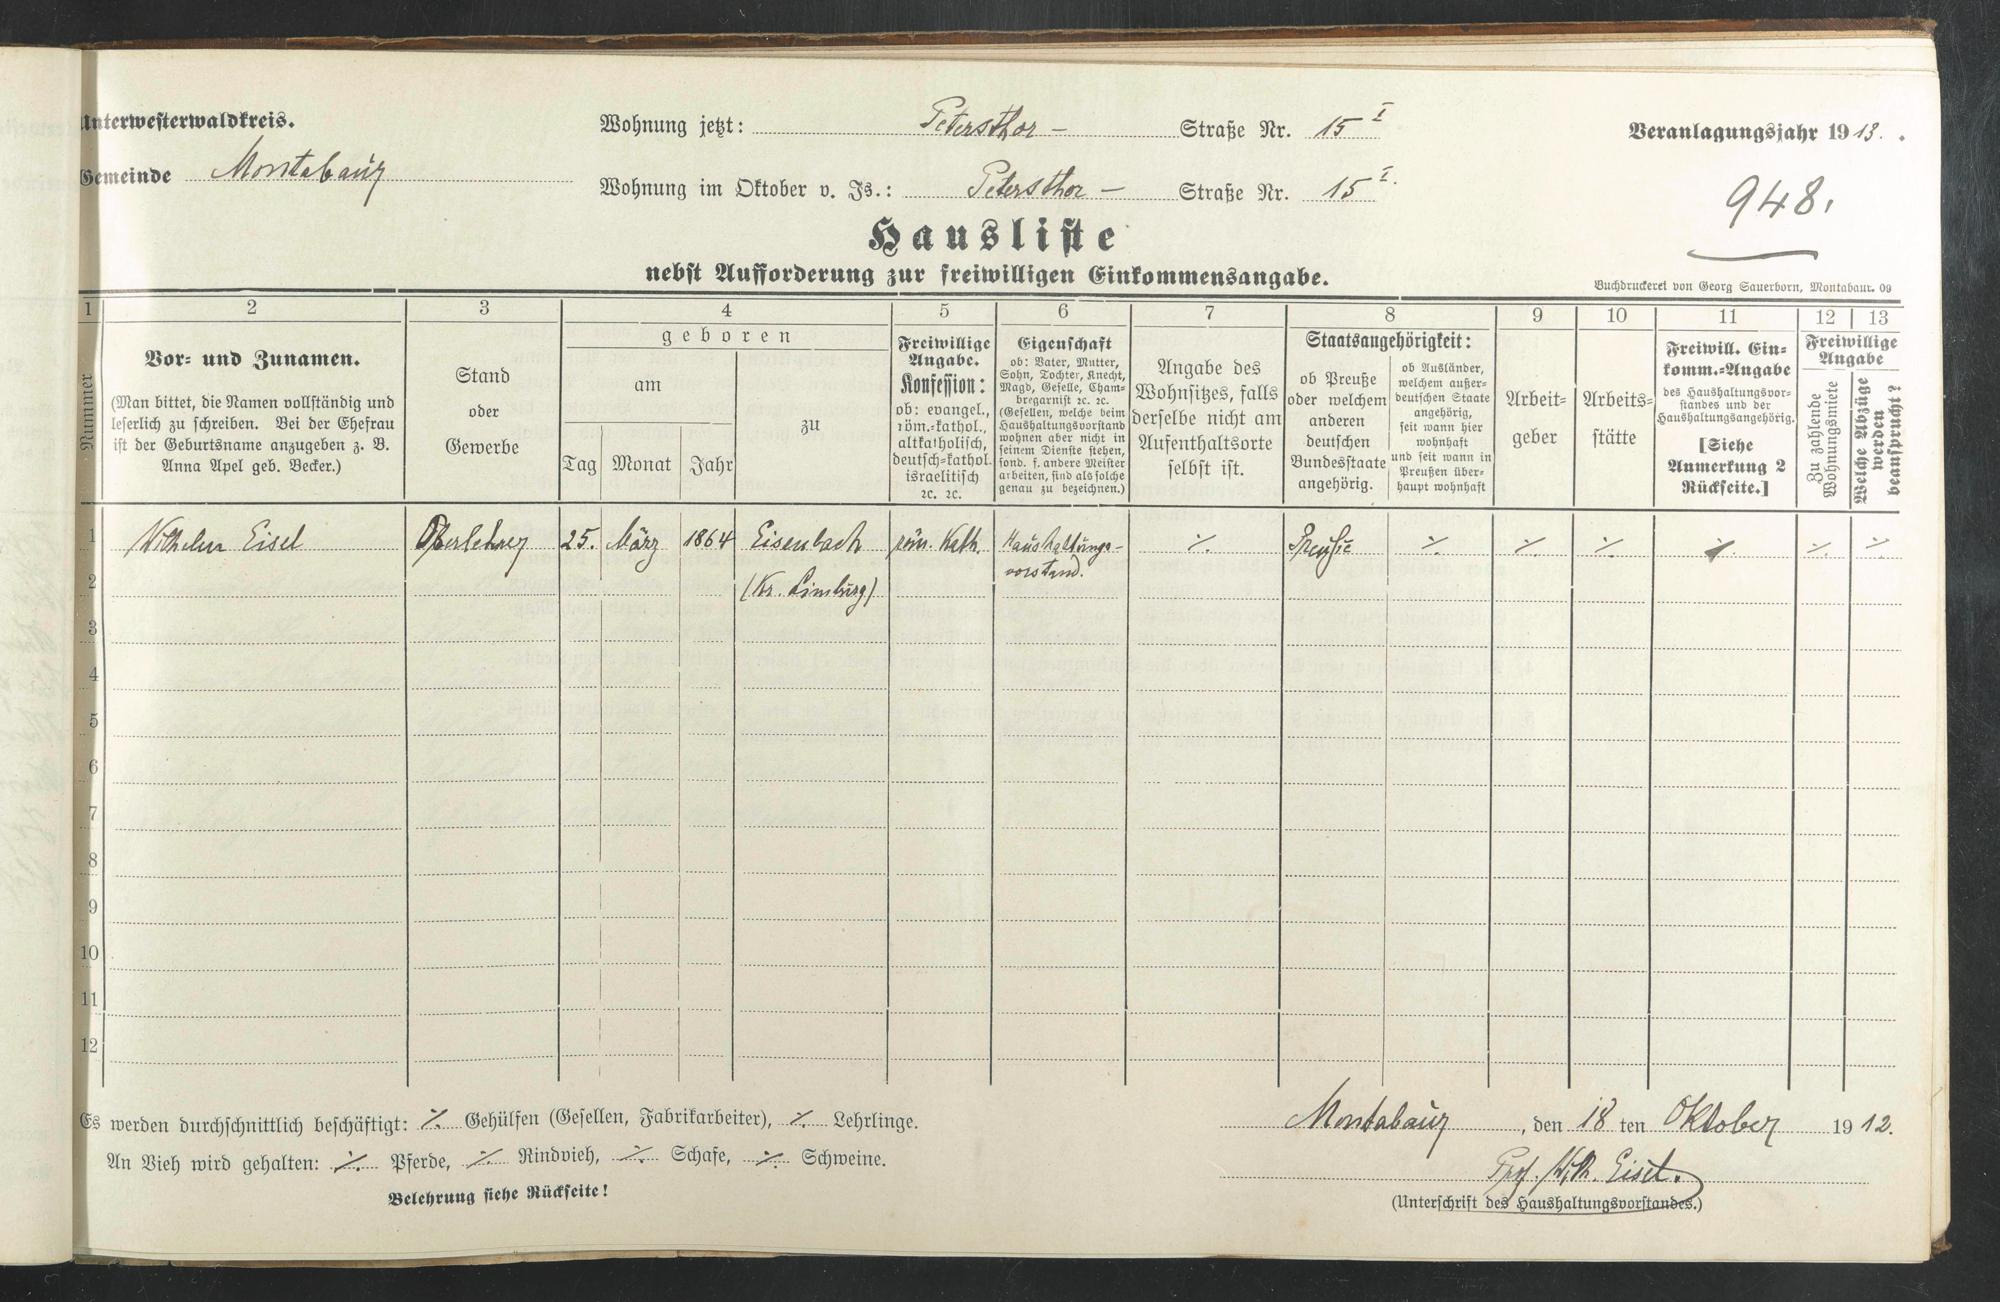 Unterwesterwaldkreis.
Gemeinde Montabaur
Wohnung jetzt: Petersthor- Straße Nr. 15 I
Wohnung im Oktober v. Js.: Petersthor- Straße Nr. 15 I.
Veranlagungsjahr 1913.
948.
Hausliste
nebst Aufforderung zur freiwilligen Einkommensangabe.
Buchdruckerei von Georg Sauerborn, Montabaur. 09
1 2 3 4 5 6 7 8 9 10 11 12 13
Nummer
Vor- und Zunamen.
(Man bittet, die Namen vollständig und
leserlich zu schreiben. Bei der Ehefrau
ist der Geburtsname anzugeben z. B.
Anna Apel geb. Becker.)
Stand
oder
Gewerbe
geboren
am
Tag Monat Jahr
zu
Freiwillige
Angabe.
Konfession:
ob: evangel.,
röm.-kathol.,
altkatholisch,
deutsch-kathol.
israelitisch
ꝛc. ꝛc.
Eigenschaft
ob: Vater, Mutter,
Sohn, Tochter, Knecht,
Magd, Geselle, Cham-
bregarnist ꝛc. ꝛc.
(Gesellen, welche beim
Haushaltungsvorstand
wohnen aber nicht in
seinem Dienste stehen,
sond. f. andere Meister
arbeiten, sind als solche
genau zu bezeichnen.)
Angabe des
Wohnsitzes, falls
derselbe nicht am
Aufenthaltsorte
selbst ist.
Staatsangehörigkeit:
ob Preuße
oder welchem
anderen
deutschen
Bundesstaate
angehörig.
ob Ausländer,
welchem außer-
deutschen Staate
angehörig,
seit wann hier
wohnhaft
und seit wann in
Preußen über-
haupt wohnhaft
Arbeit-
geber
Arbeits-
stätte
Freiwill. Ein-
komm.-Angabe
des Haushaltungsvor-
standes und der
Haushaltungsangehörig.
[Siehe
Anmerkung 2
Rückseite.]
Freiwillige
Angabe
Zu zahlende
Wohnungsmiete
Welche Abzüge
werden
beansprucht?
1 Wilhelm Eisel Oberlehrer 25. März 1864 Eisenbach röm. Kath. Haushaltungs- ·/. Preuße ·/. ·/. ·/. ·/. ·/. ·/.
2 (Kr. Limburg) vorstand.
3
4
5
6
7
8
9
10
11
12
Es werden durchschnittlich beschäftigt: ·/. Gehülfen (Gesellen, Fabrikarbeiter), ·/. Lehrlinge.
An Vieh wird gehalten: ·/. Pferde, ·/. Rindvieh, ·/. Schafe, ·/. Schweine.
Belehrung siehe Rückseite!
Montabaur, den 18 ten Oktober 1912.
Prof. Wilh. Eisel.
(Unterschrift des Haushaltungsvorstandes.)